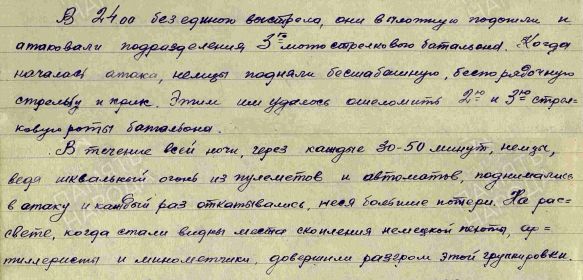 В 24.00 без единого выстрела, они вплотную подошли и
атаковали подразделения 3го мотострелкового батальона. Когда
началась атака, немцы подняли бесшабашную, беспорядочную
стрельбу и крик. Этим им удалось ошеломить 2ю и 3ю стрел-
ковую роты батальона.
В течение всей ночи, через каждые 30-50 минут, немцы,
ведя шквальный огонь из пулеметов и автоматов, поднимались
в атаку и каждый раз откатывались, неся большие потери. На рас-
свете, когда стали видны места скопления немецкой пехоты, ар-
тиллеристы и минометчики, довершили разгром этой группировки.